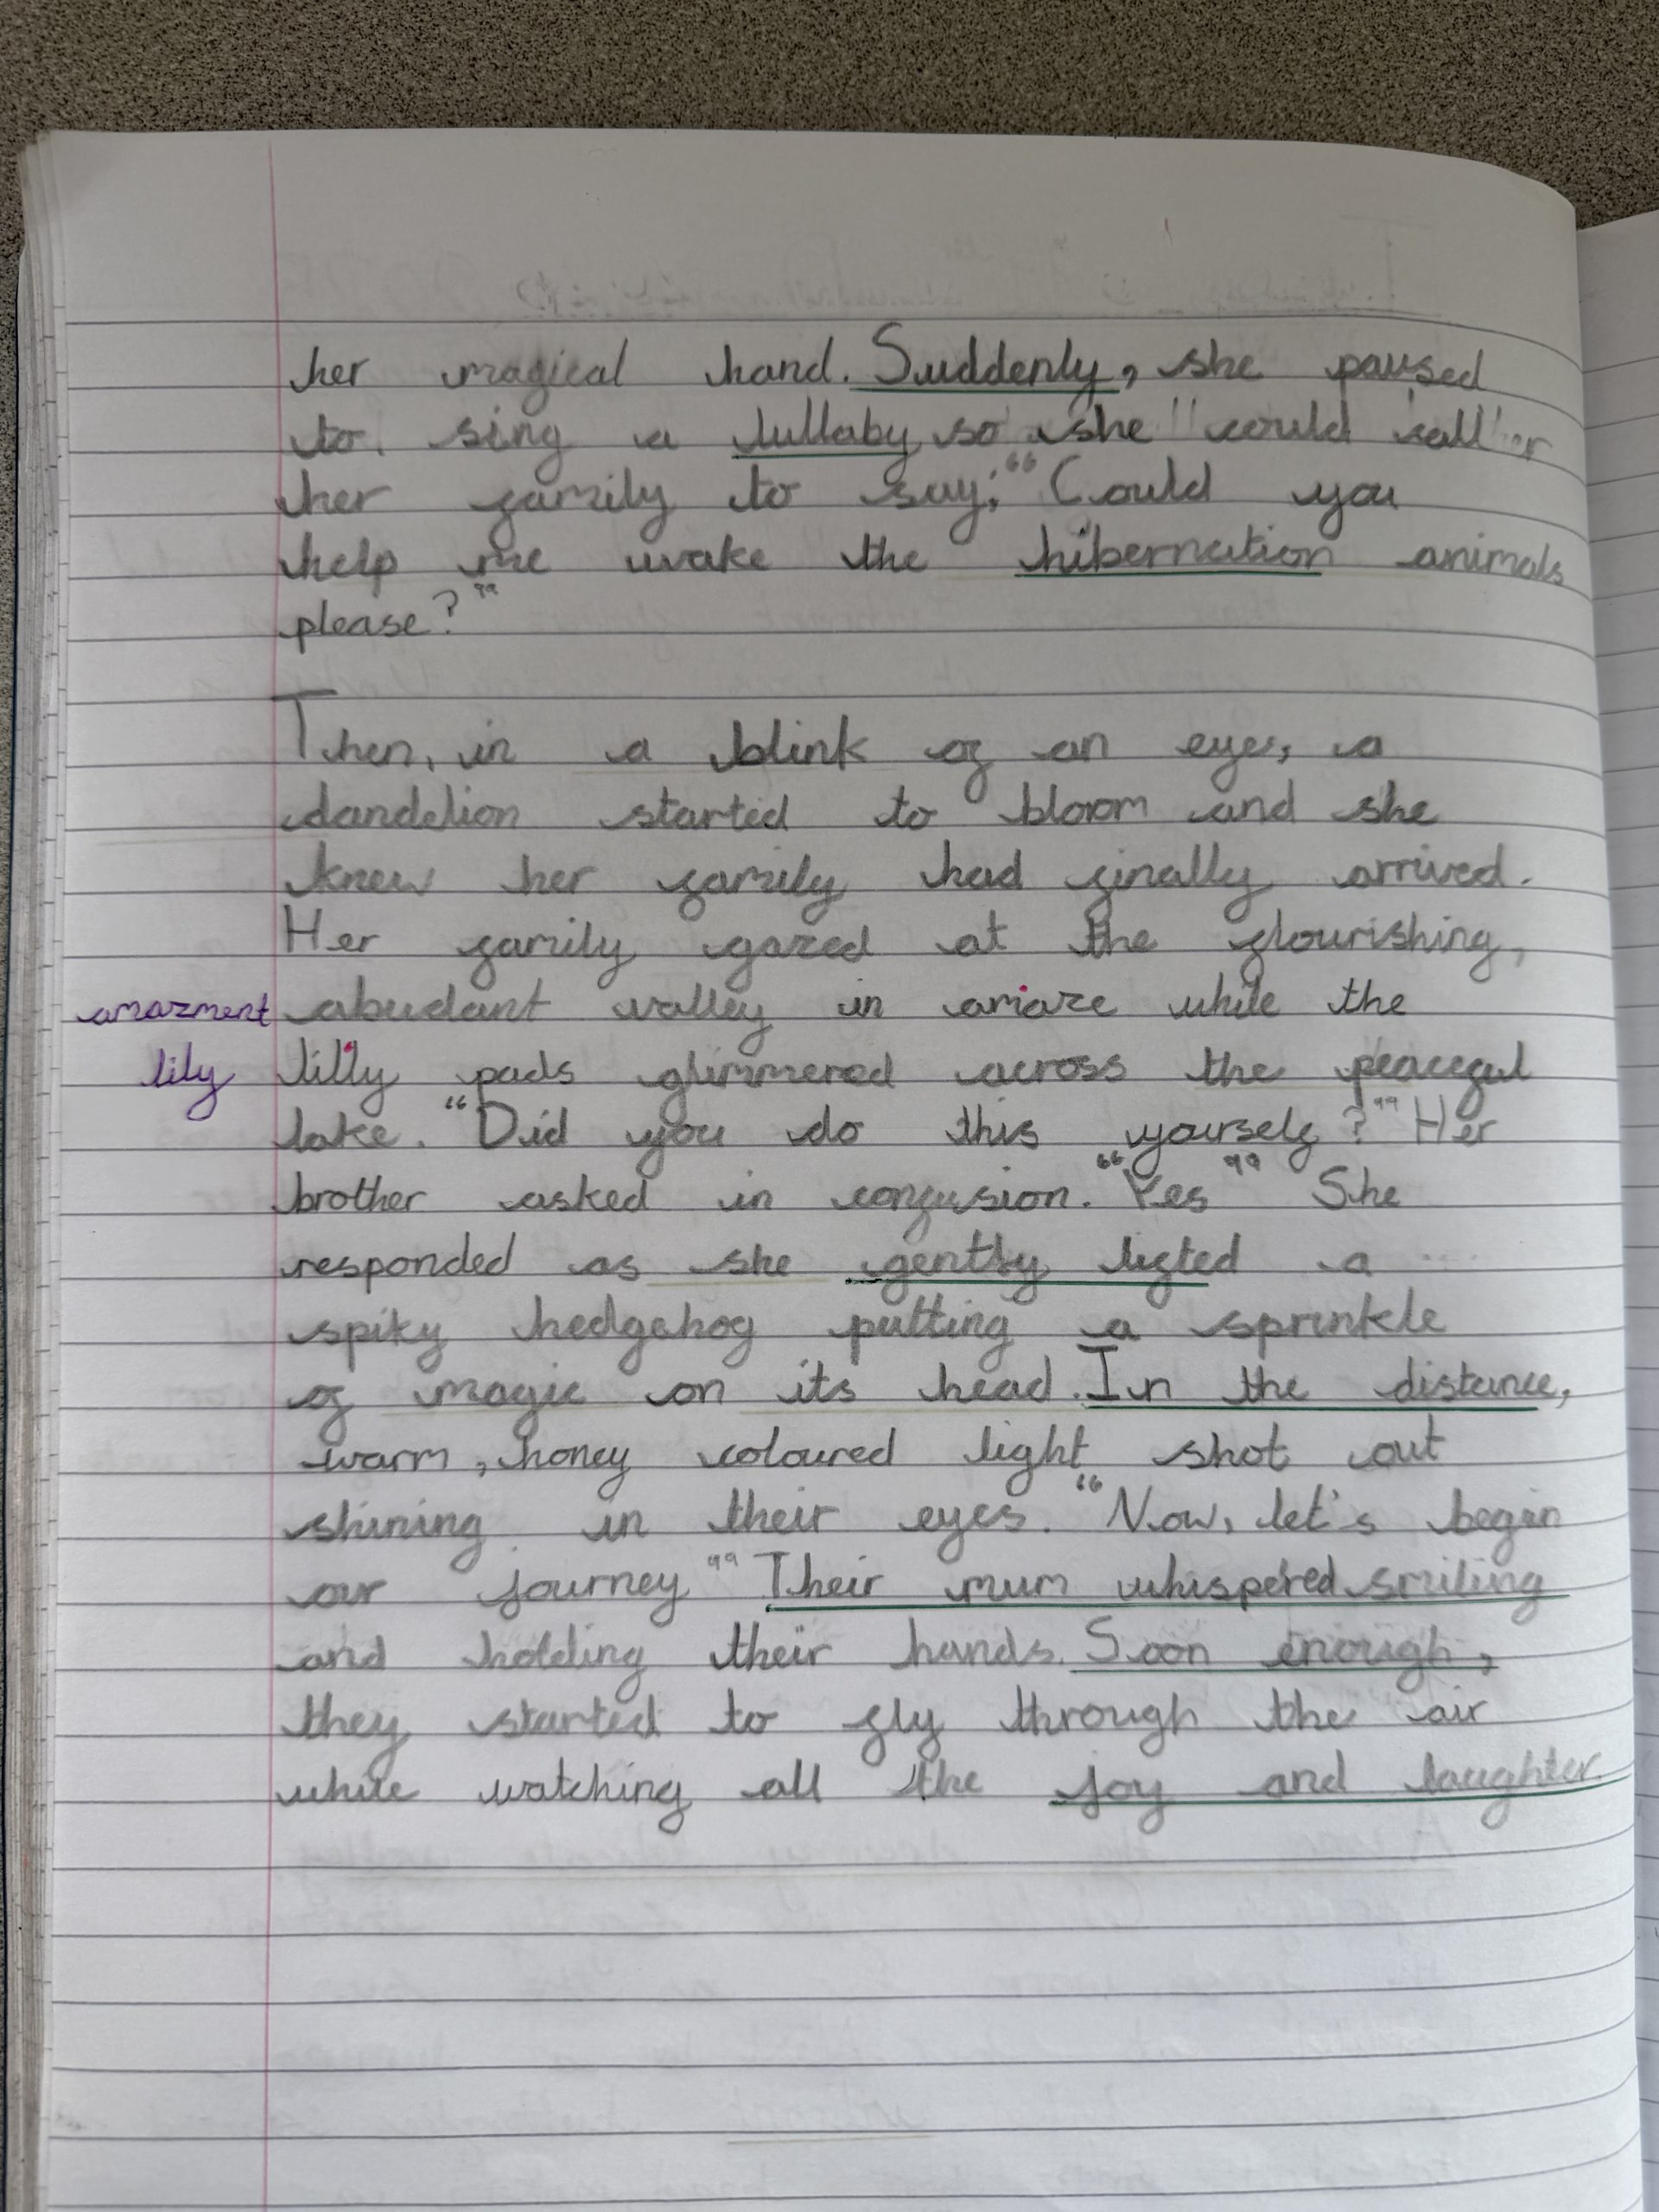 her magical hand. Suddenly, she paused
to sing a lullaby so she could call
her family to say; “Could you
help me wake the hibernation animals
please?”
Then, in a blink of an eye, a
dandelion started to bloom and she
knew her family had finally arrived.
Her family gazed at the flourishing,
amazment abudant valley in amaze while the
lily lilly pads glimmered across the peaceful
lake. “Did you do this yourself?” Her
brother asked in confusion. “Yes” She
responded as she gently lifted a
spiky hedgehog putting a sprinkle
of magic on its head. In the distance,
warm, honey coloured light shot out
shining in their eyes. “Now, let's begin
our journey” Their mum whispered smiling
and holding their hands. Soon enough,
they started to fly through the air
while watching all the joy and laughter.